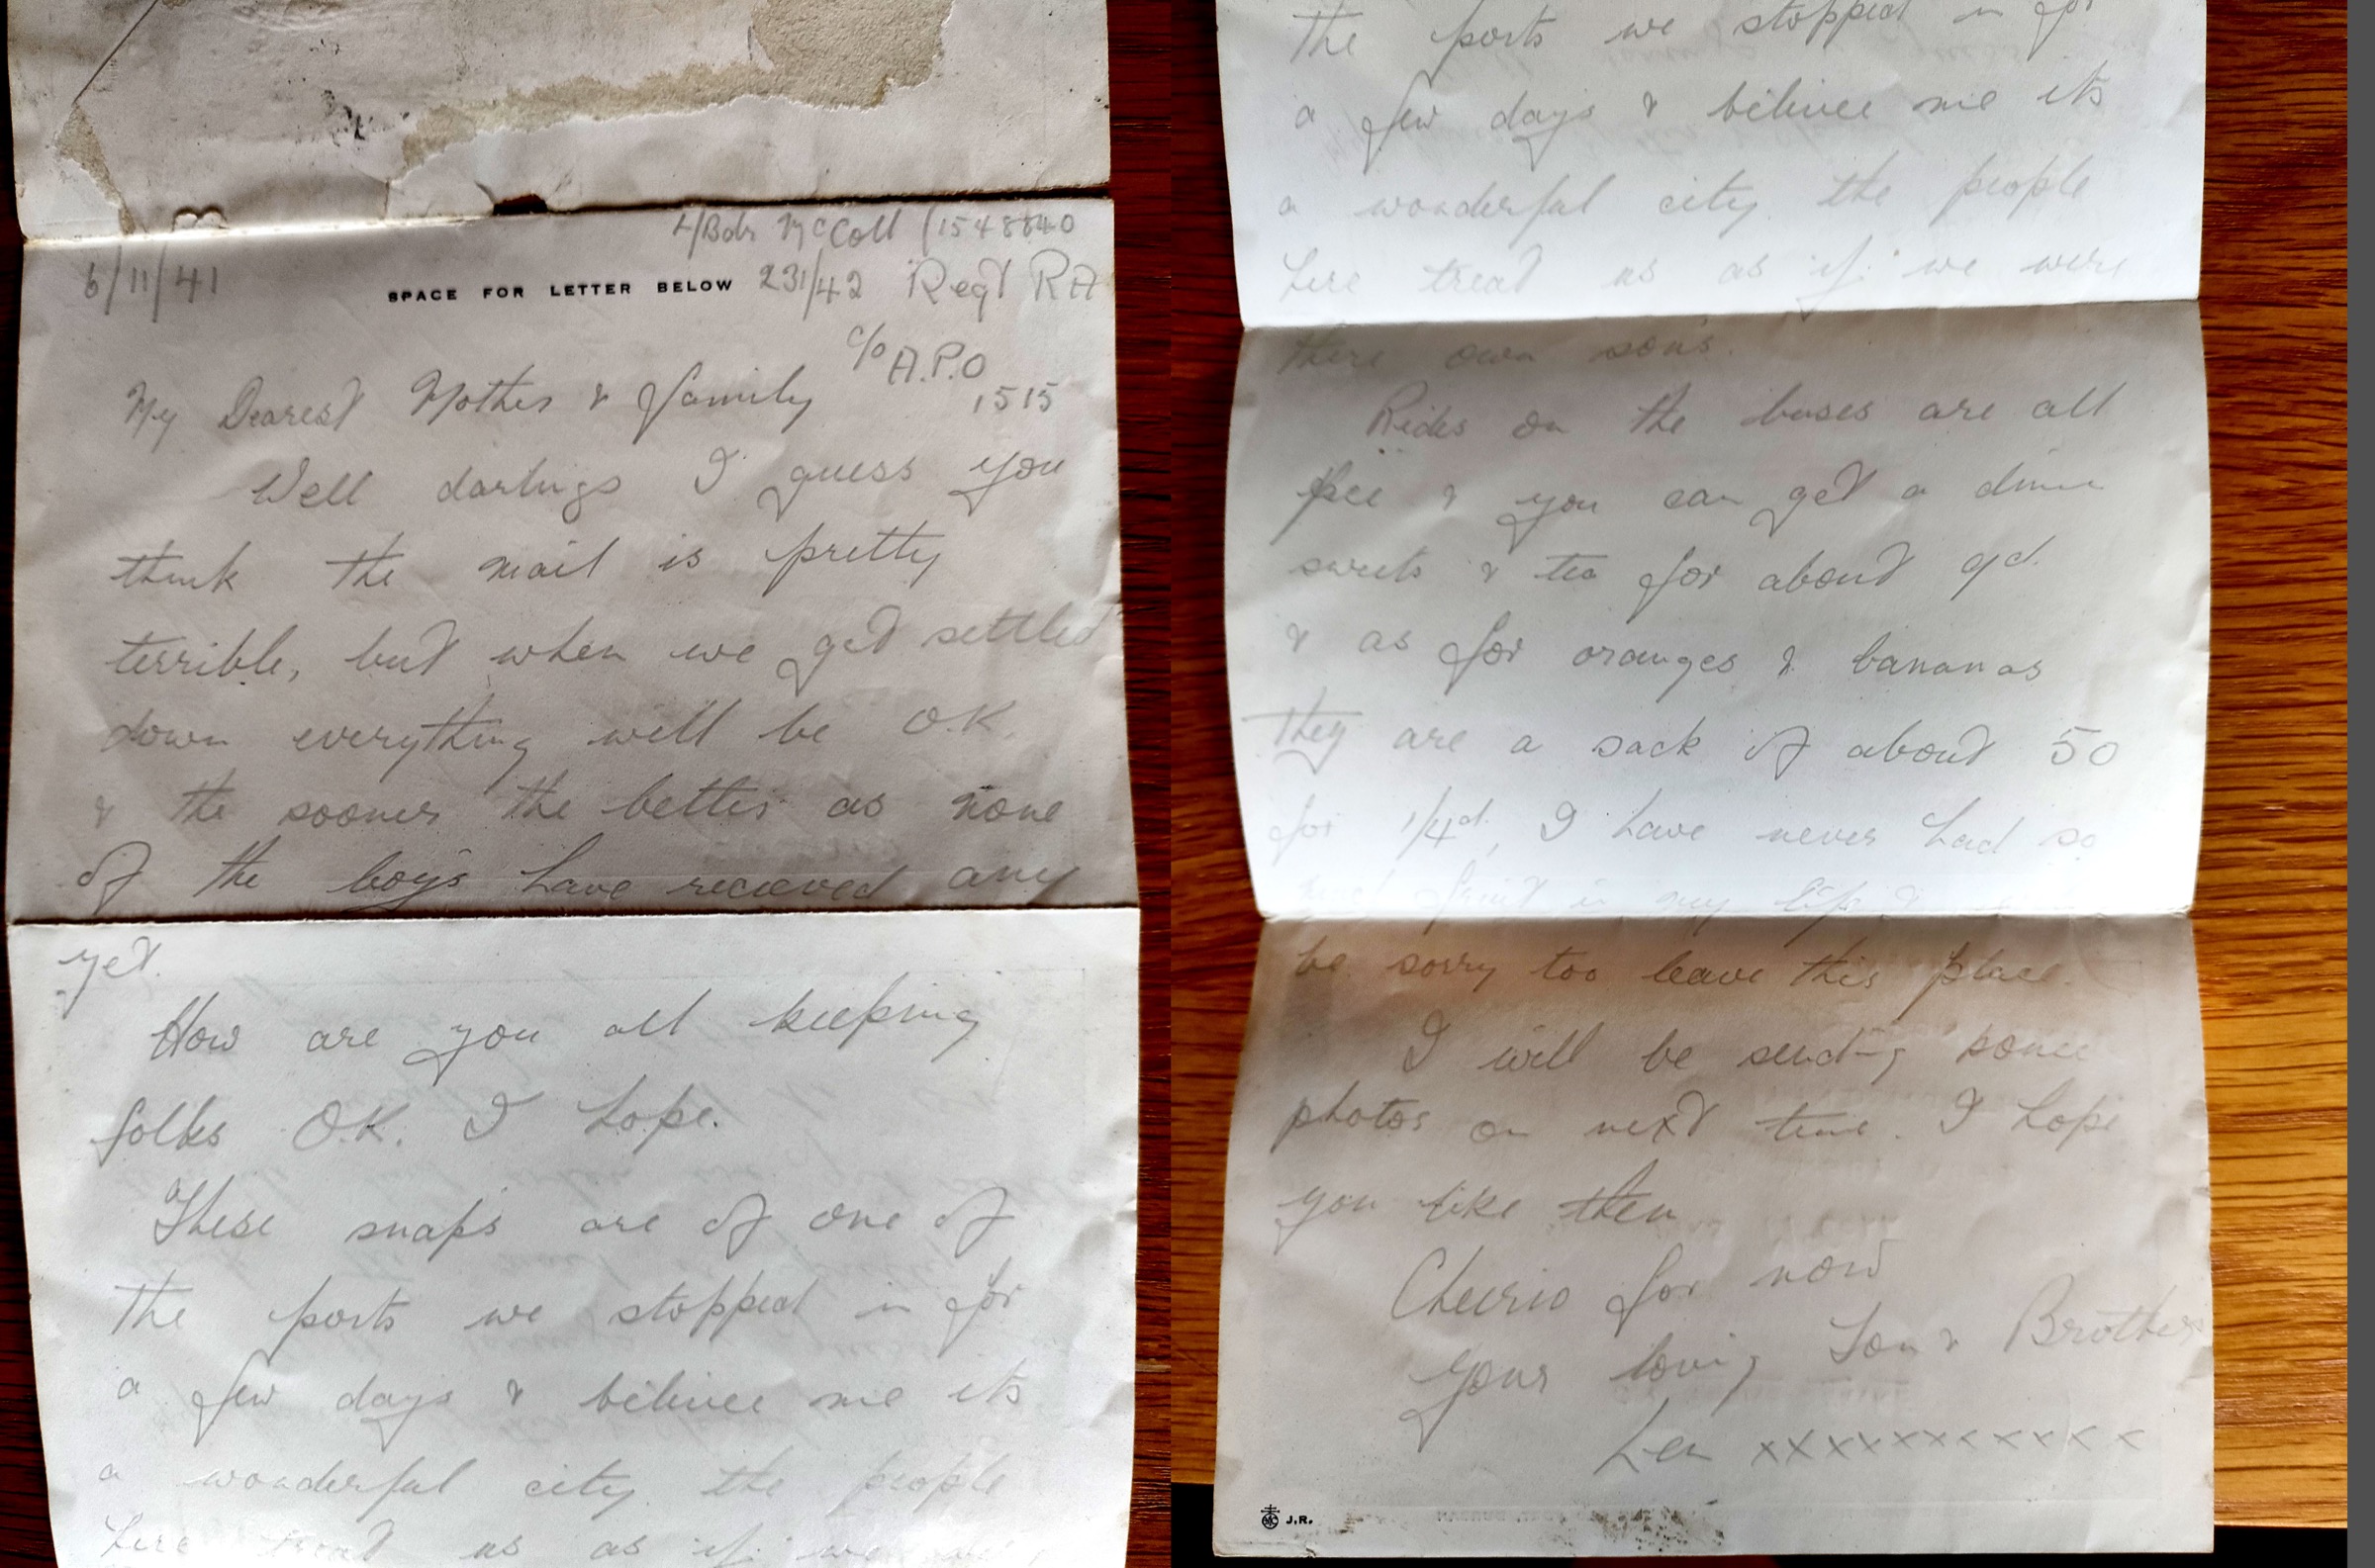 L/Bdr McColl (1548840
6/11/41
SPACE FOR LETTER BELOW 231/42 Regt RA
c/o A.P.O
1515
My Dearest Mother & family
Well darlings I guess you
think the mail is pretty
terrible, but when we get settled
down everything will be O.K.
& the sooner the better as none
of the boys have recieved any
yet.
How are you all keeping
folks O.K. I hope.
These snaps are of one of
the ports we stopped in for
a few days & belivee me its
a wonderful city the people
here treat us as if we
the ports we stopped in for
a few days & belivee me its
a wonderful city the people
here treat us as if we were
there own sons.
Rides on the buses are all
free & you can get a
sweets & tea for about 9d.
& as for oranges & bananas
they are a sack of about 50
for 1/4d, I have never had so
fruit in my life &
be sorry too leave this place.
I will be sending some
photos on next time. I hope
you like them
Cheerio for now
Your loving Son & Brother
Len xxxxxxxxxxx
J.R.